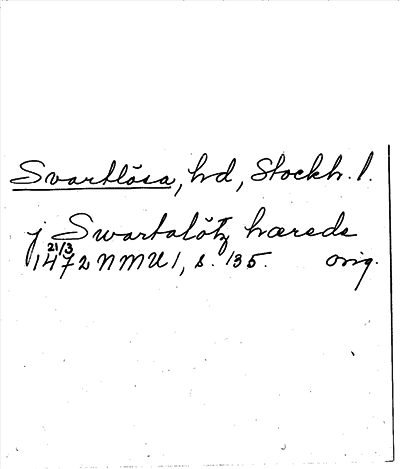 Svartlösa, hd, Stockh. l.
j Swartalötz hæreds
21/3
1472 NMU 1, s. 135. orig.